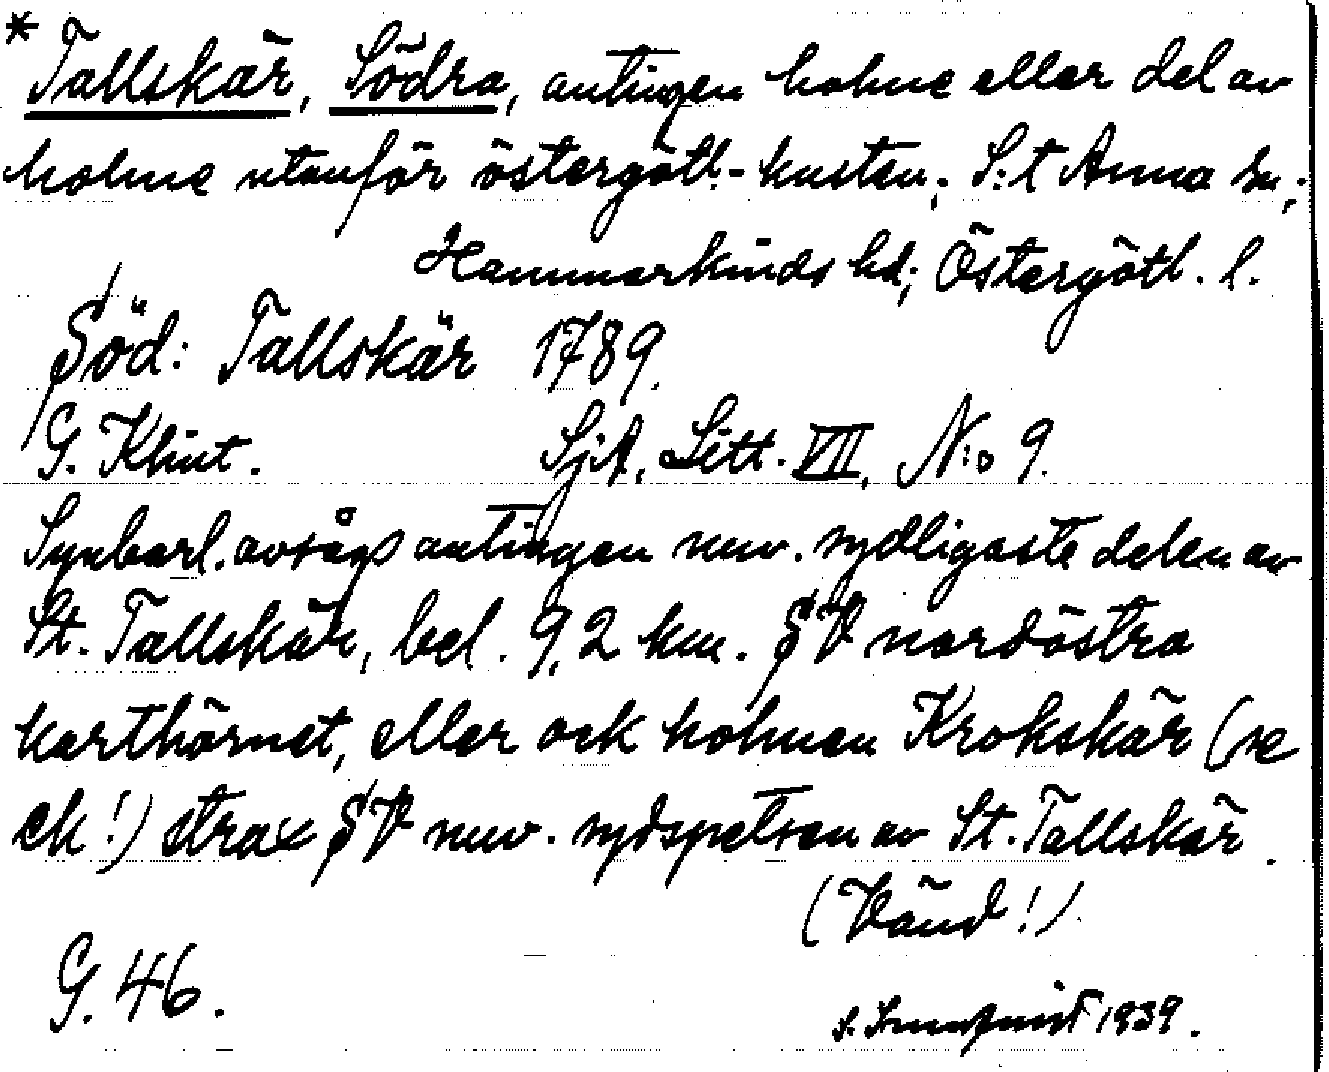 * Tallskär, Södra, antingen holme eller del av
holme utanför östergötl.-kusten; S:t Anna sn,;
Hammarkinds hd; Östergötl. l.
Söd: Tallskär 1789.
G. Klint. SjA, Litt. VII, N:o 9.
Synbarl. avsågs antingen nuv. sydligaste delen av
St. Tallskär, bel. 9,2 km. SV nordöstra
karthörnet, eller ock holmen Krokskär (se
ck!) strax SV nuv. sydspetsen av St. Tallskär.
(Vänd!)
G. 46.
1939.